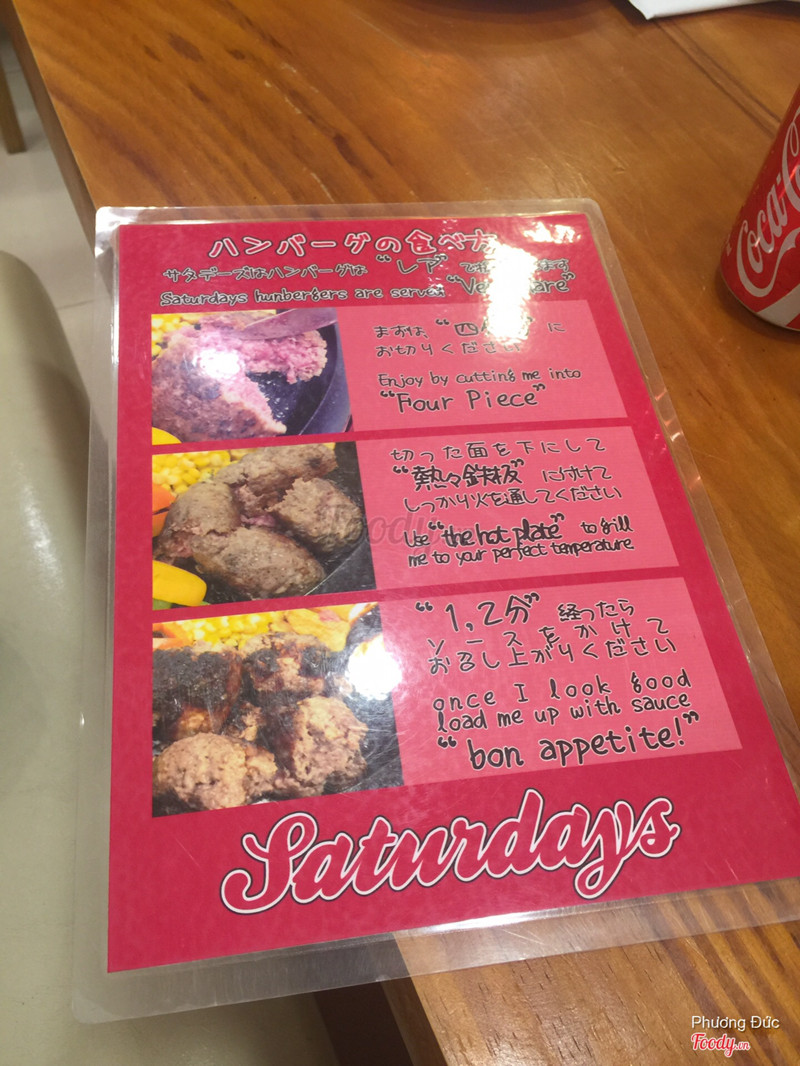 ハンバーグの食べ方
サタデーズはハンバーグは "レア"
Saturdays hunbergers are served
まずは、
お切りください
Enjoy by cutting me into
"Four Piece"
切った面を下にして
"熱々鉄板" に付けて
しっかり火を通してください
Use "the hot plate" to grill
me to your perfect temperature
"1,2分" 経ったら
ソースをかけて
お召し上がりください
once I look good
load me up with sauce
"bon appetite!"
Saturdays
Coca-Co
Foody
Phương Đức
Foody.vn